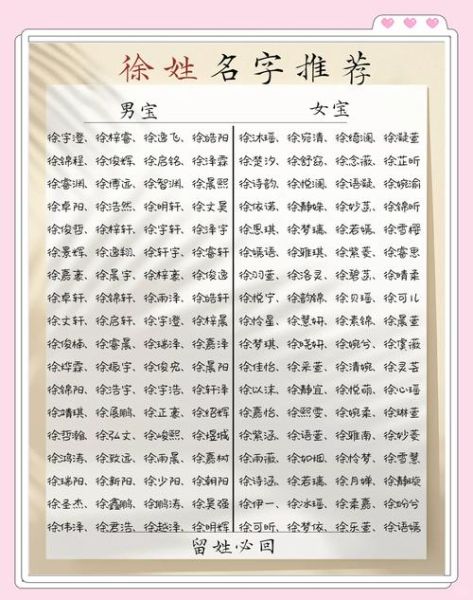 徐姓名字推荐
男宝 女宝
徐宇澄、徐梓睿、徐逸飞、徐皓阳 徐沐瑶、徐宛清、徐绮澜、徐疑萱
徐锦程、徐俊辉、徐启铭、徐泽霖 徐楚汐、徐舒窈、徐念薇、徐芷昕
徐睿渊、徐博远、徐智渊、徐晨熙 徐诗韵、徐悦澜、徐语疑、徐婉渝
徐卓阳、徐浩然、徐明轩、徐文昊 徐依诺、徐静姝、徐妙菡、徐锦昕
徐俊哲、徐梓轩、徐宇轩、徐泽宇 徐思琪、徐梦瑶、徐若嫣、徐雪樱
徐景辉、徐逸翔、徐轩宇、徐睿轩 徐嫣语、徐雅琪、徐紫菱、徐睿思
徐嘉豪、徐晨宇、徐梓豪、徐俊逸 徐羽萱、徐洛灵、徐碧菡、徐晴柔
徐卓轩、徐锦轩、徐雨泽、徐皓轩 徐悦宁、徐韵锦、徐贝瑶、徐可儿
徐文轩、徐启轩、徐宇澄、徐梓晨 徐怜星、徐慧妍、徐素锦、徐晨萱
徐俊楠、徐睿晨、徐瑞泽、徐嘉泽 徐梦琪、徐晓妍、徐婉兮、徐虞薇
徐烨霖、徐振宇、徐俊宛、徐晨阳 徐佳怡、徐采萱、徐清婉、徐灵芸
徐锦阳、徐浩宇、徐宇浩、徐轩泽 徐以沫、徐静宜、徐悦萌、徐心瑶
徐靖琪、徐展鹏、徐正豪、徐绍辉 徐嘉怡、徐熙雯、徐婉柔、徐琳萱
徐哲瀚、徐弘文、徐峻熙、徐煜城 徐紫涵、徐语萱、徐雅南、徐妙菱
徐鸿涛、徐致远、徐雨晨、徐嘉树 徐雨薇、徐如烟、徐怜梦、徐雪慧
徐瑞阳、徐新阳、徐少阳、徐朝阳 徐诗涵、徐若瑶、徐月婵、徐静璇
徐圣杰、徐鑫鹏、徐鹏涛、徐昊强 徐伊一、徐冰瑶、徐柔嘉、徐盼兮
徐伟泽、徐君浩、徐越泽、徐明辉 徐可昕、徐梦依、徐乐萱、徐语嫣
留姓必回